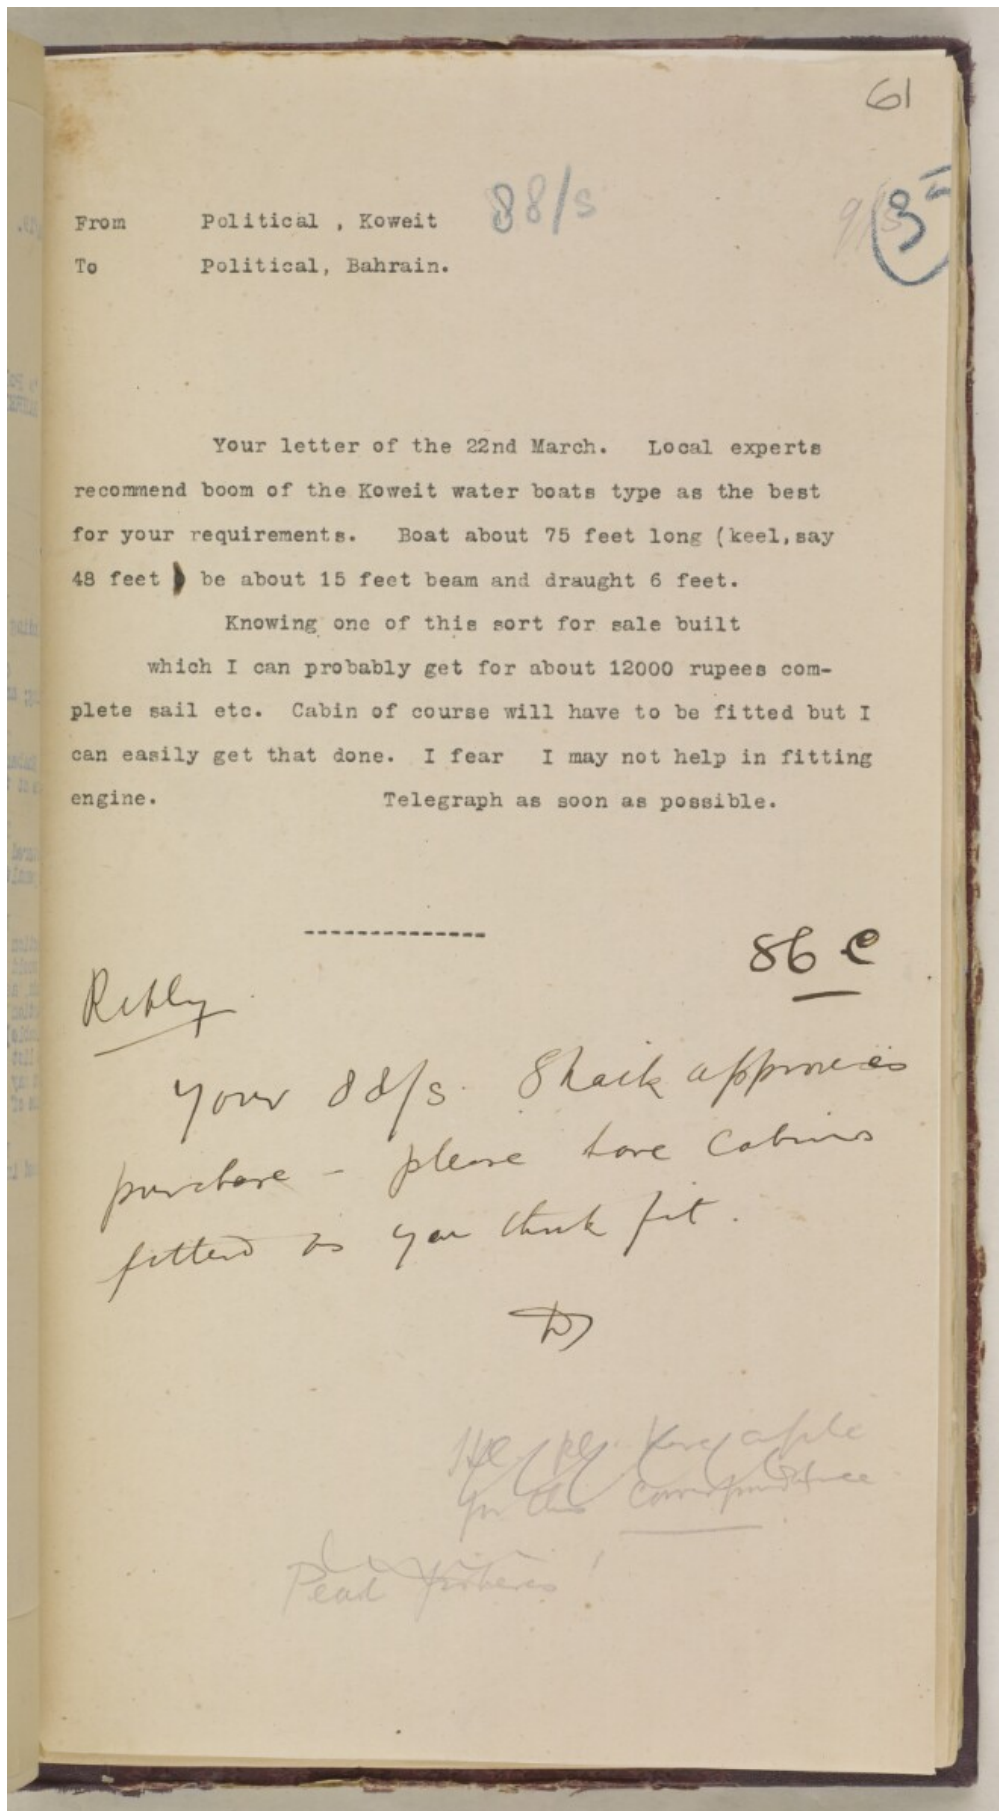 61
From Political , Koweit 88/S
35
To Political, Bahrain.
Your letter of the 22nd March. Local experts
recommend boom of the Koweit water boats type as the best
for your requirements. Boat about 75 feet long (keel, say
48 feet ) be about 15 feet beam and draught 6 feet.
Knowing one of this sort for sale built
which I can probably get for about 12000 rupees com-
plete sail etc. Cabin of course will have to be fitted but I
can easily get that done. I fear I may not help in fitting
engine. Telegraph as soon as possible.
--------------
86 C
Reply
Your 88/S. Shaik approves
purchase - please have cabins
fitted as you think fit.
D
for this correspondence
Pearl